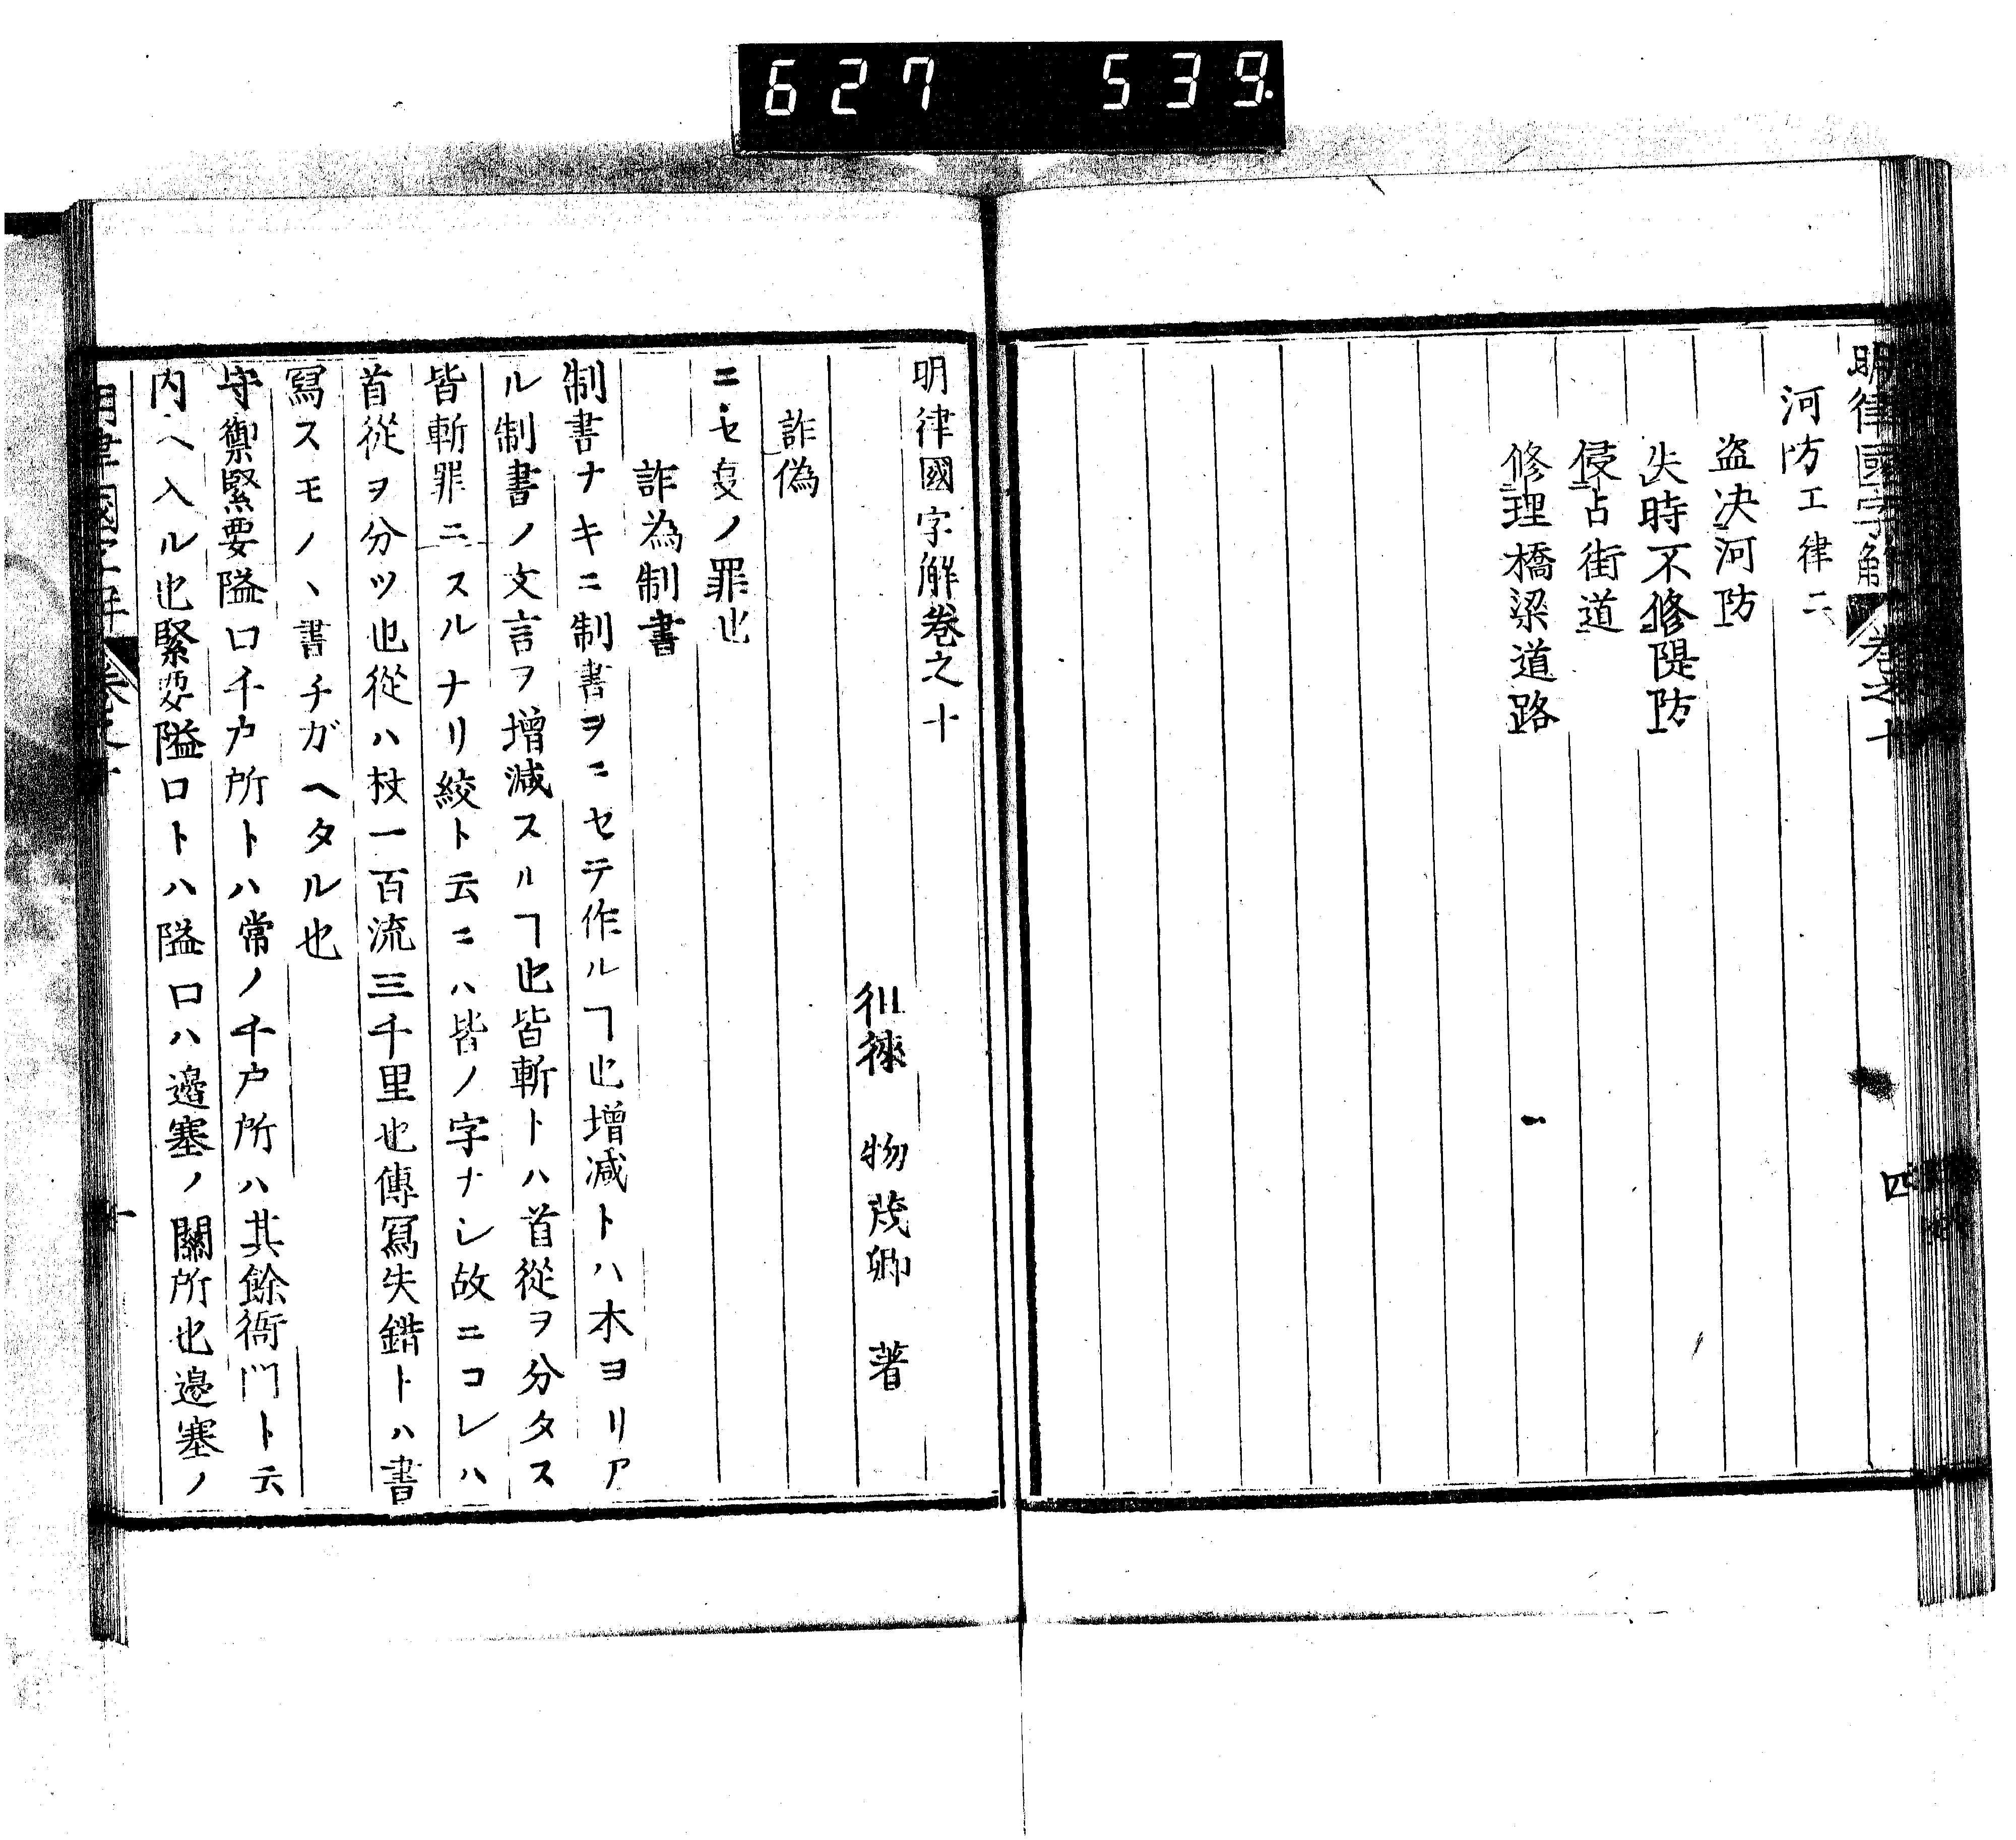 627 539
明律國字解 卷之十
河防工律二
盗決河防
失時不修隄防
侵占街道
修理橋梁道路
四
明律國字解卷之十
徂徠 物茂卿 著
詐偽
ニセ叓ノ罪也
詐為制書
制書ナキニ制書ヲニセテ作ルヿ也増减トハ木ヨリア
ル制書ノ文言ヲ増减スルヿ也皆斬トハ首從ヲ分タス
皆斬罪ニスルナリ絞ト云ニハ皆ノ字ナシ故ニコレハ
首從ヲ分ツ也從ハ杖一百流三千里也傳冩失錯トハ書
冩スモノヽ書チガヘタル也
守禦緊要隘口千户所トハ常ノ千户所ハ其餘衙門ト云
内ヘ入ル也緊要隘口トハ隘口ハ邉塞ノ關所也邉塞ノ
明律國字解 卷之十 一